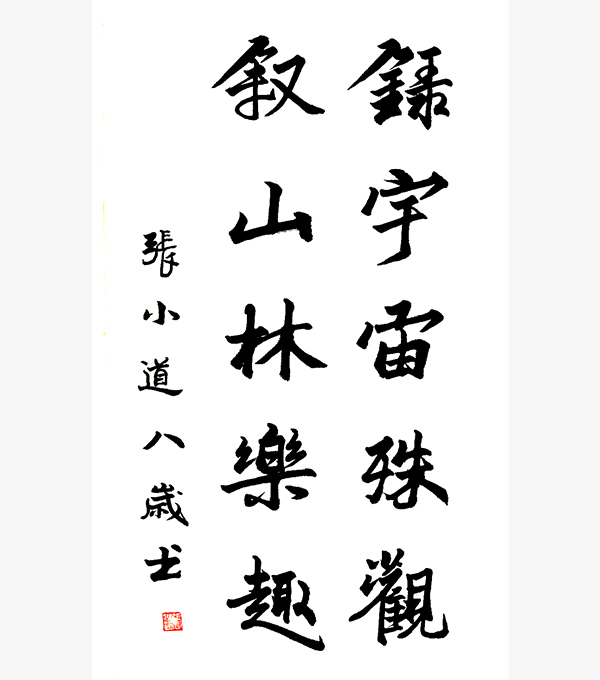 録宇宙殊觀
叙山林樂趣
張小道八歲士